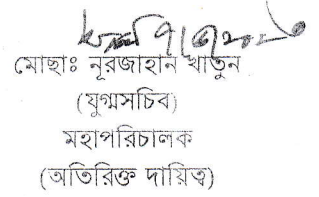 মোছাঃ নূরজাহান খাতুন
(যুগ্মসচিব)
মহাপরিচালক
(অতিরিক্ত দায়িত্ব)